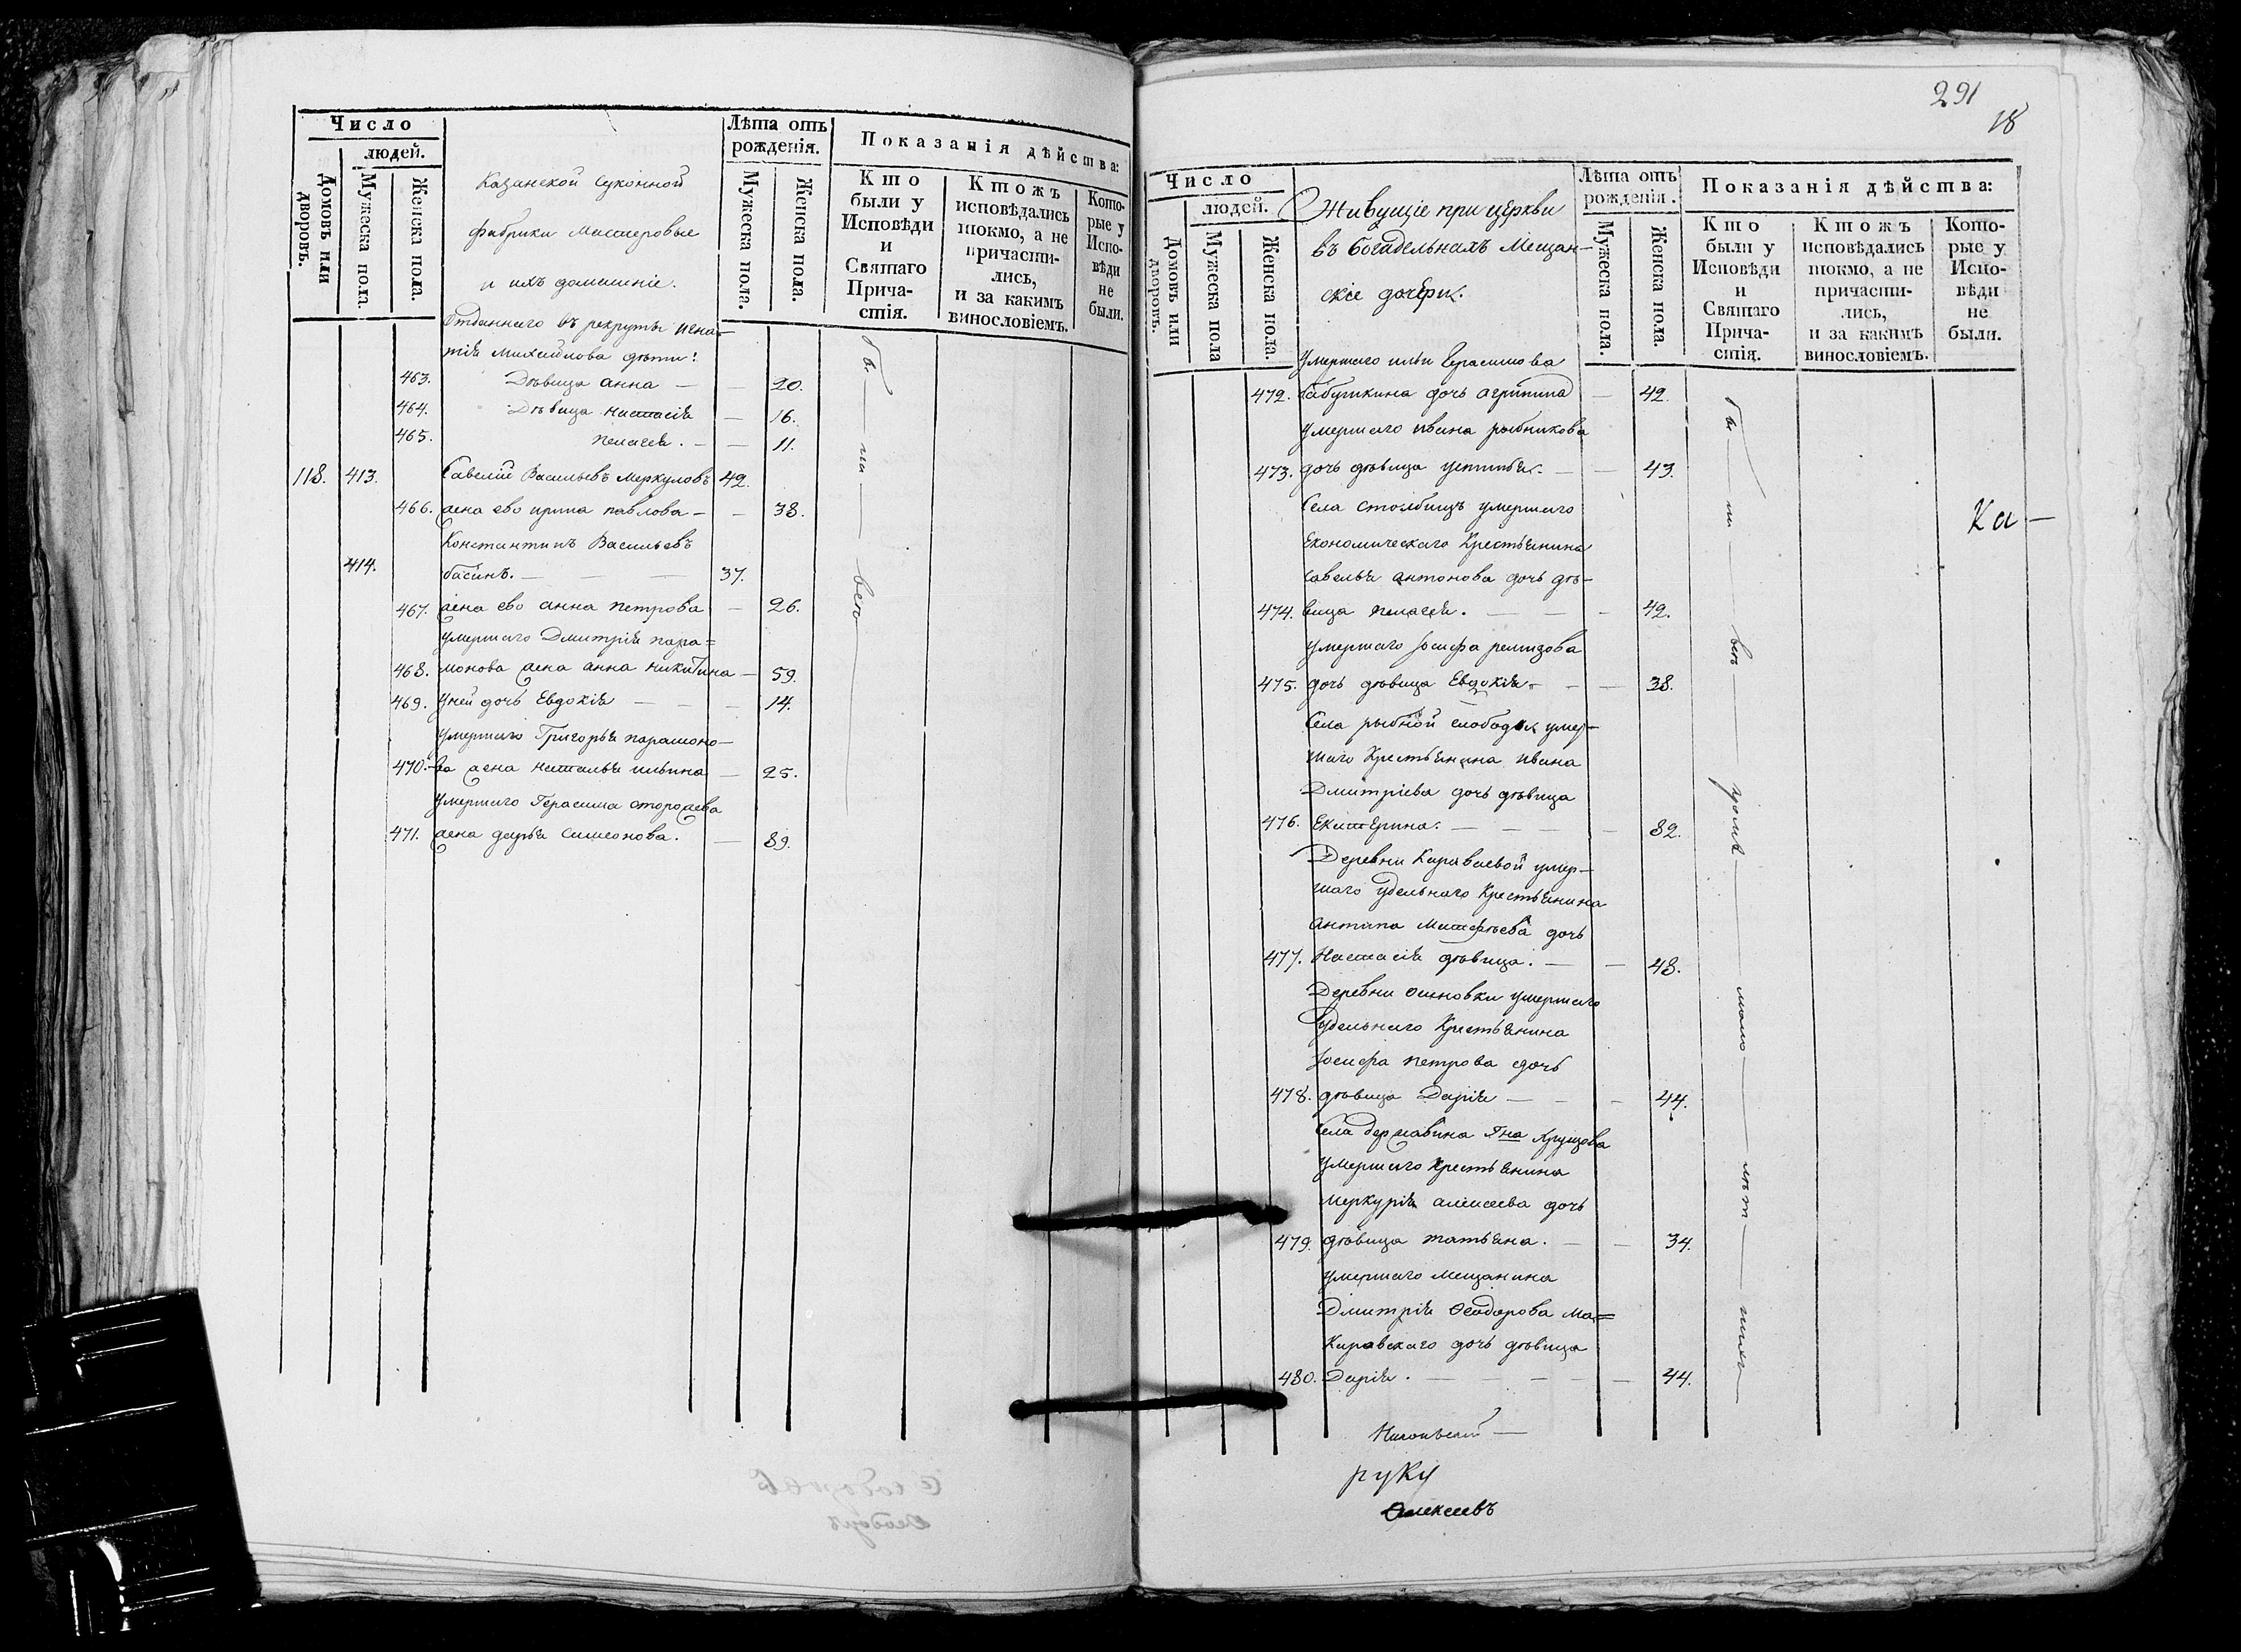 Число
людей.
Домовъ или дворовъ.
Мужеска пола.
Женска пола.
Казанской Суконной
фабрики Мастеровые
и ихъ домашніе.
Лѣта отъ рожденія.
Мужеска пола.
Женска пола.
Показанія дѣйства:
Кто были у Исповѣди и Святаго Причастія.
Ктожъ исповѣдались токмо, а не причастились, и за какимъ винословіемъ.
Которые у Исповѣди не были.
Отданнаго въ рекруты Игна-
тія михайлова дѣти:
463. Дѣвица анна — — 20.
464. Дѣвица настасія — 16.
465. пелагея. — — 11.
118. 413. Савелій Васильевъ Меркуловъ 42.
466. жена ево ирина павлова — — 38.
Константинъ Васильевъ
414. басинъ. — — — 37.
467. жена ево анна петрова — 26.
умершаго Дмитрія пара=
468. монова жена анна никитина — 59.
469. у ней дочь Евдокія — — — 14.
умершаго Григорья парамоно-
470. ва жена наталья ильина — 25.
умершаго Герасима сторожева
471. жена дарья симеонова. — 89.
291
18
Число
людей.
Домовъ или дворовъ.
Мужеска пола
Женска пола.
Живущіе при церкви
въ богадельнахъ Мещан-
скіе дочери.
Лѣта отъ рожденія.
Мужеска пола.
Женска пола.
Показанія дѣйства:
Кто были у Исповѣди и Святаго Причастія.
Ктожъ исповѣдались токмо, а не причастились, и за какимъ винословіемъ.
Которые у Исповѣди не были.
умершаго ильи Герасимова
472. бабушкина дочь агрипина — 42.
умершаго ивана рыбникова
473. дочь дѣвица устинья. — — 43.
Села столбищъ умершаго
Економическаго Крестьянина
савелья антонова дочь дѣ-
474. вица пелагея. — — — 42.
умершаго Іосифа ремизова
475. дочь дѣвица Евдокія. — — 38.
Села рыбной слободы умер-
шаго Крестьянина ивана
Дмитріева дочь дѣвица
476. Екатерина. — — — — 82.
Ка —
Деревни Караваевой умер-
шаго удельнаго Крестьянина
антипа Матфѣева дочь
477. Настасія дѣвица. — — 48.
Деревни осиновки умершаго
удельнаго Крестьянина
Іосифа петрова дочь
478. дѣвица Дарія — — — 44.
Села державина Гна Хрущова
умершаго крестьянина
меркурія алексеева дочь
479. дѣвица татьяна. — — 34.
умершаго мещанина
Дмитрія Ѳеодорова Ма=
Каравскаго дочь дѣвица
480. Дарія. — — — — 44.
руку
Алексеевъ